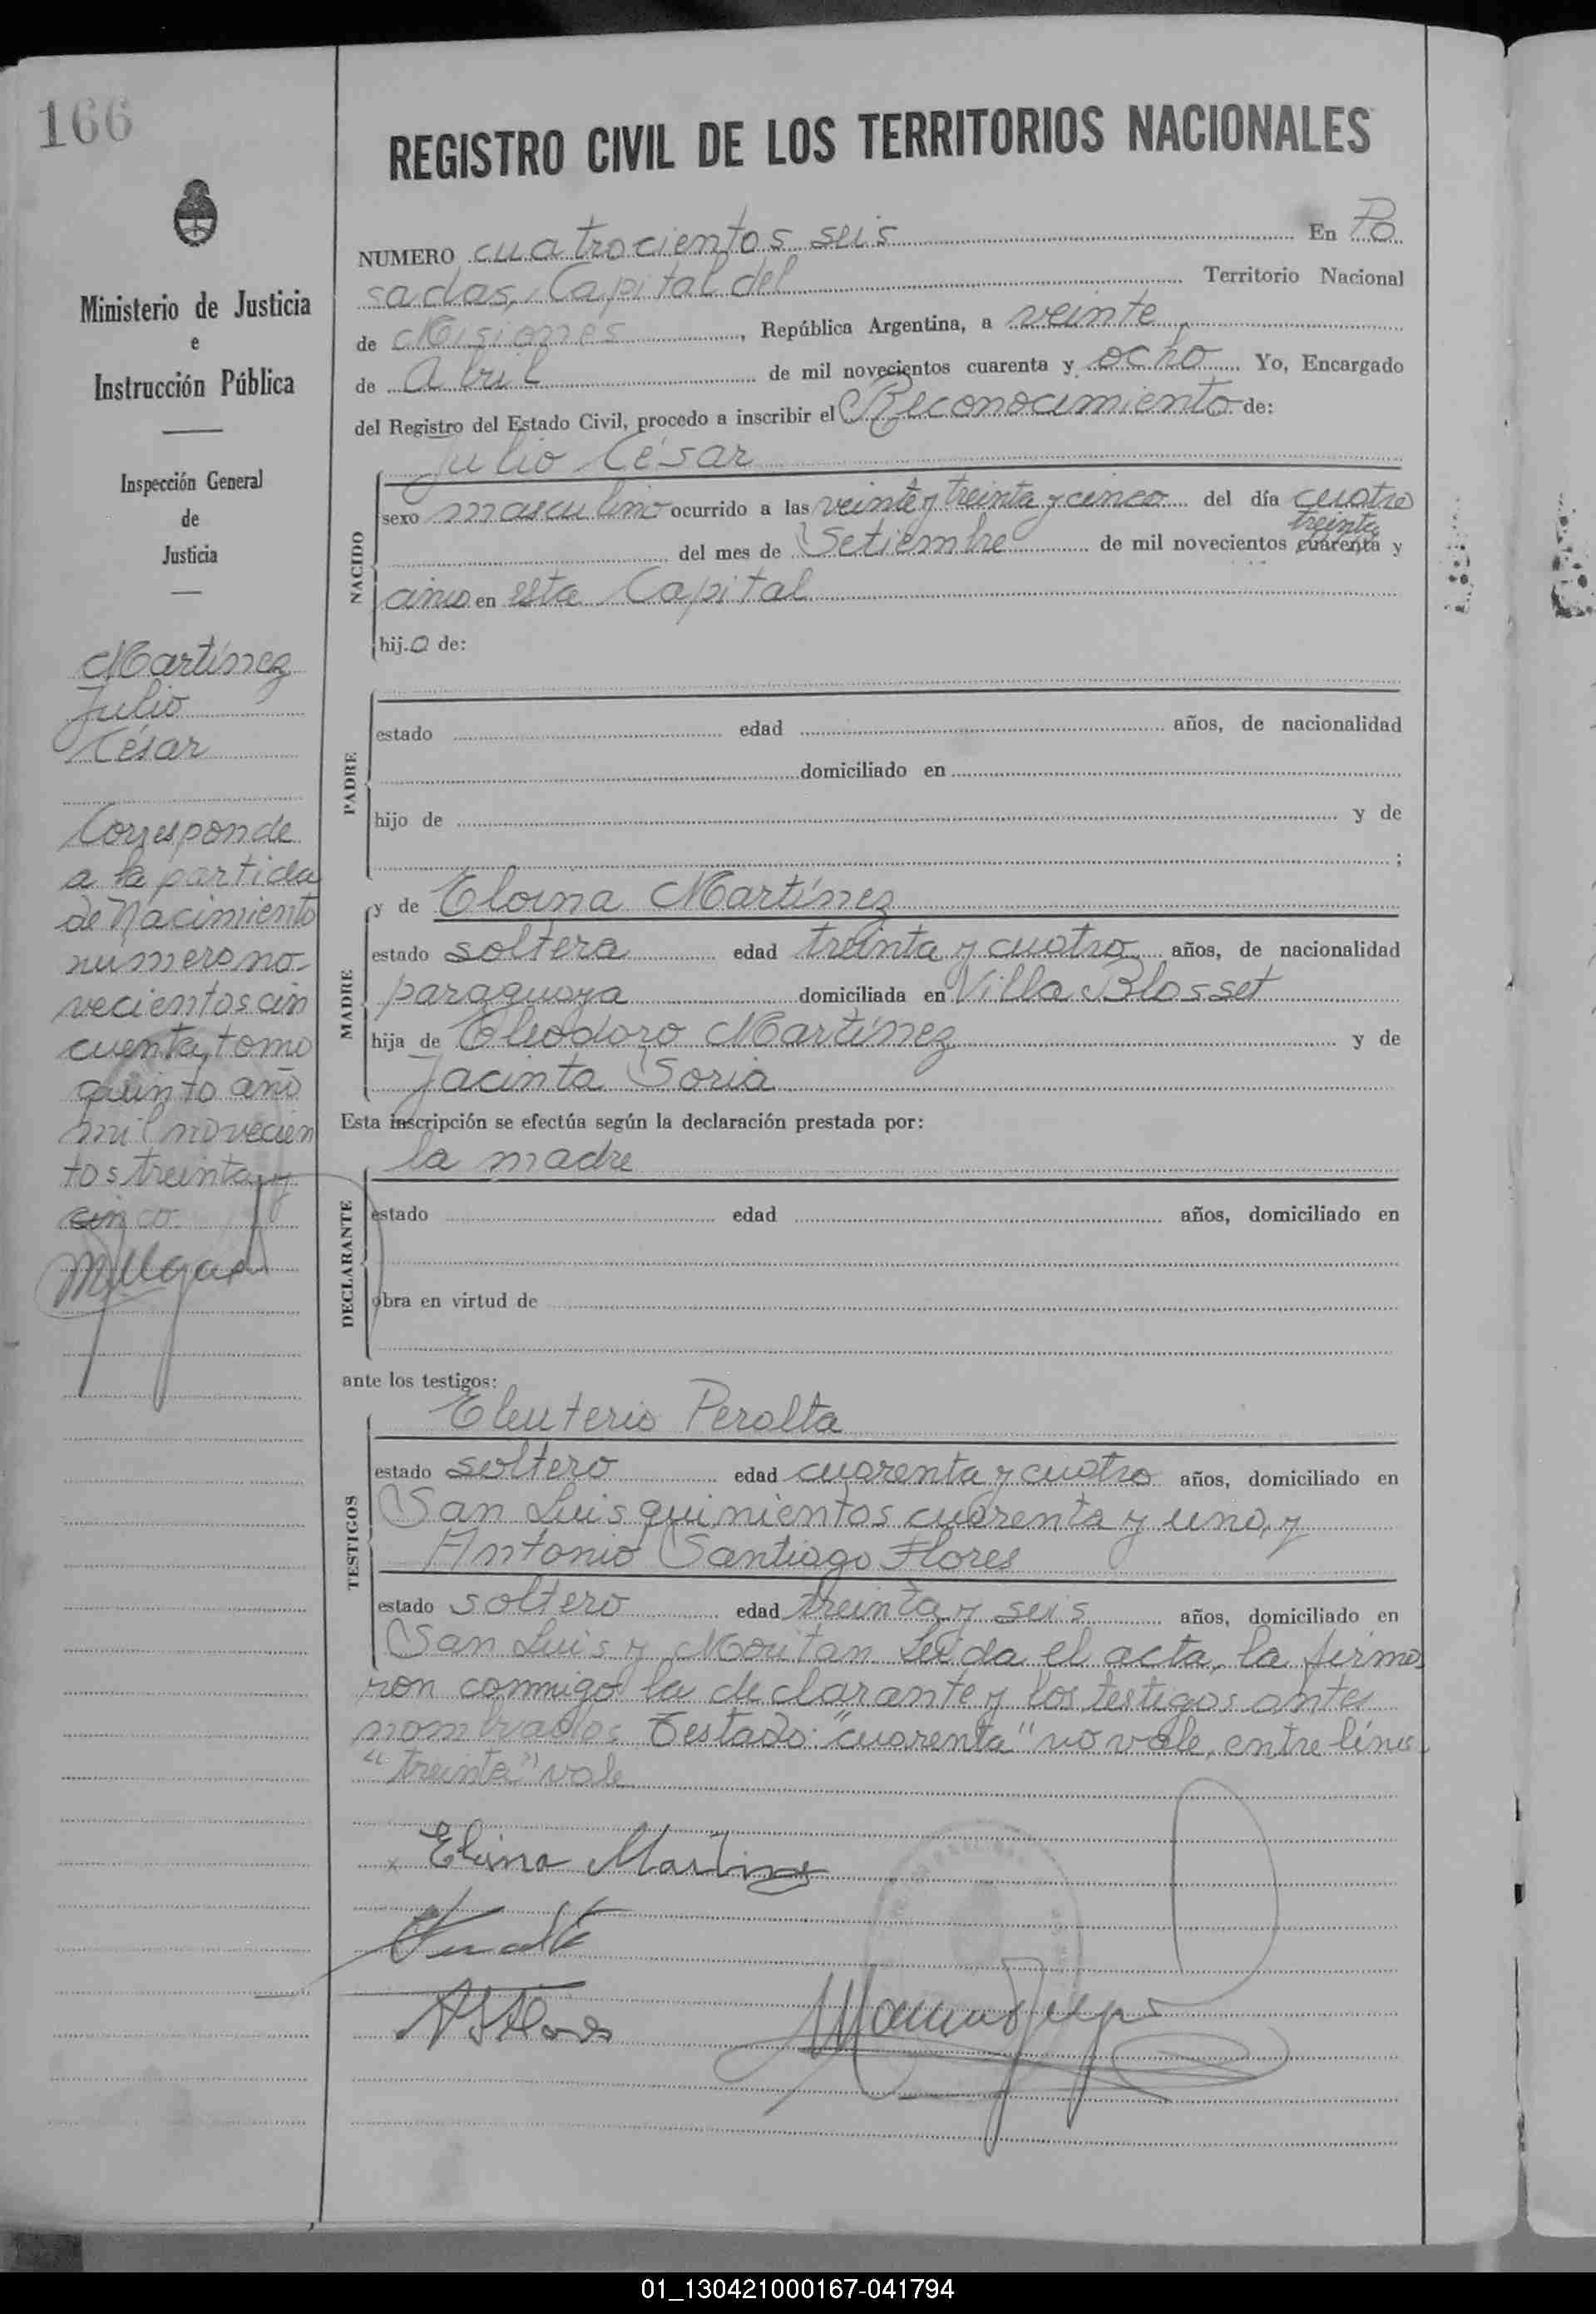 166
REGISTRO CIVIL DE LOS TERRITORIOS NACIONALES
Ministerio de Justicia
e
Instrucción Pública
Inspección General
de
Justicia
Martínez
Julio
César
Corresponde
a la partida
de Nacimiento
número no-
vecientos cin
cuenta, tomo
quinto año
mil novecien
tos treinta y
cinco
NUMERO cuatrocientos seis En Po
sadas, Capital del Territorio Nacional
de Misiones, República Argentina, a veinte
de Abril de mil novecientos cuarenta y ocho Yo, Encargado
del Registro del Estado Civil, procedo a inscribir el Reconocimiento de:
Julio César
NACIDO
sexo masculino ocurrido a las veinte y treinta y cinco del día cuatro
treinta
del mes de Setiembre de mil novecientos cuarenta y
cinco en esta Capital
hijo de:
PADRE
estado edad años, de nacionalidad
domiciliado en
hijo de y de
;
MADRE
y de Eloina Martínez
estado soltera edad treinta y cuatro años, de nacionalidad
paraguaya domiciliada en Villa Blosset
hija de Eleodoro Martínez y de
Jacinta Soria
Esta inscripción se efectúa según la declaración prestada por:
la madre
DECLARANTE
estado edad años, domiciliado en
obra en virtud de
ante los testigos:
TESTIGOS
Eleuterio Peralta
estado soltero edad cuarenta y cuatro años, domiciliado en
San Luis quinientos cuarenta y uno, y
Antonio Santiago Flores
estado soltero edad treinta y seis años, domiciliado en
San Luis y Moritan Leida el acta, la firma
ron conmigo la declarante y los testigos antes
nombrados Testado: "cuarenta" no vale, entre línea
"treinta" vale
x Elina Martinez
01_130421000167-041794